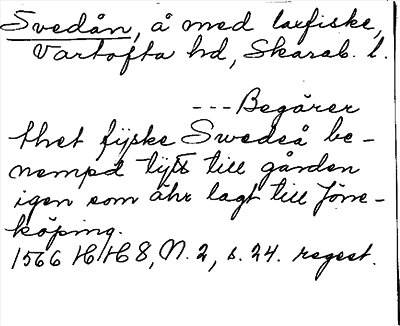 Svedån, å med laxfiske,
Vartofta hd, Skarab. l.
--- Begärer
thet fijske Swedeå be-
nempd lijtt till gården
igen som ähr lagt till Jöne-
köping.
1566 HH 8, N. 2, s. 24. regest.